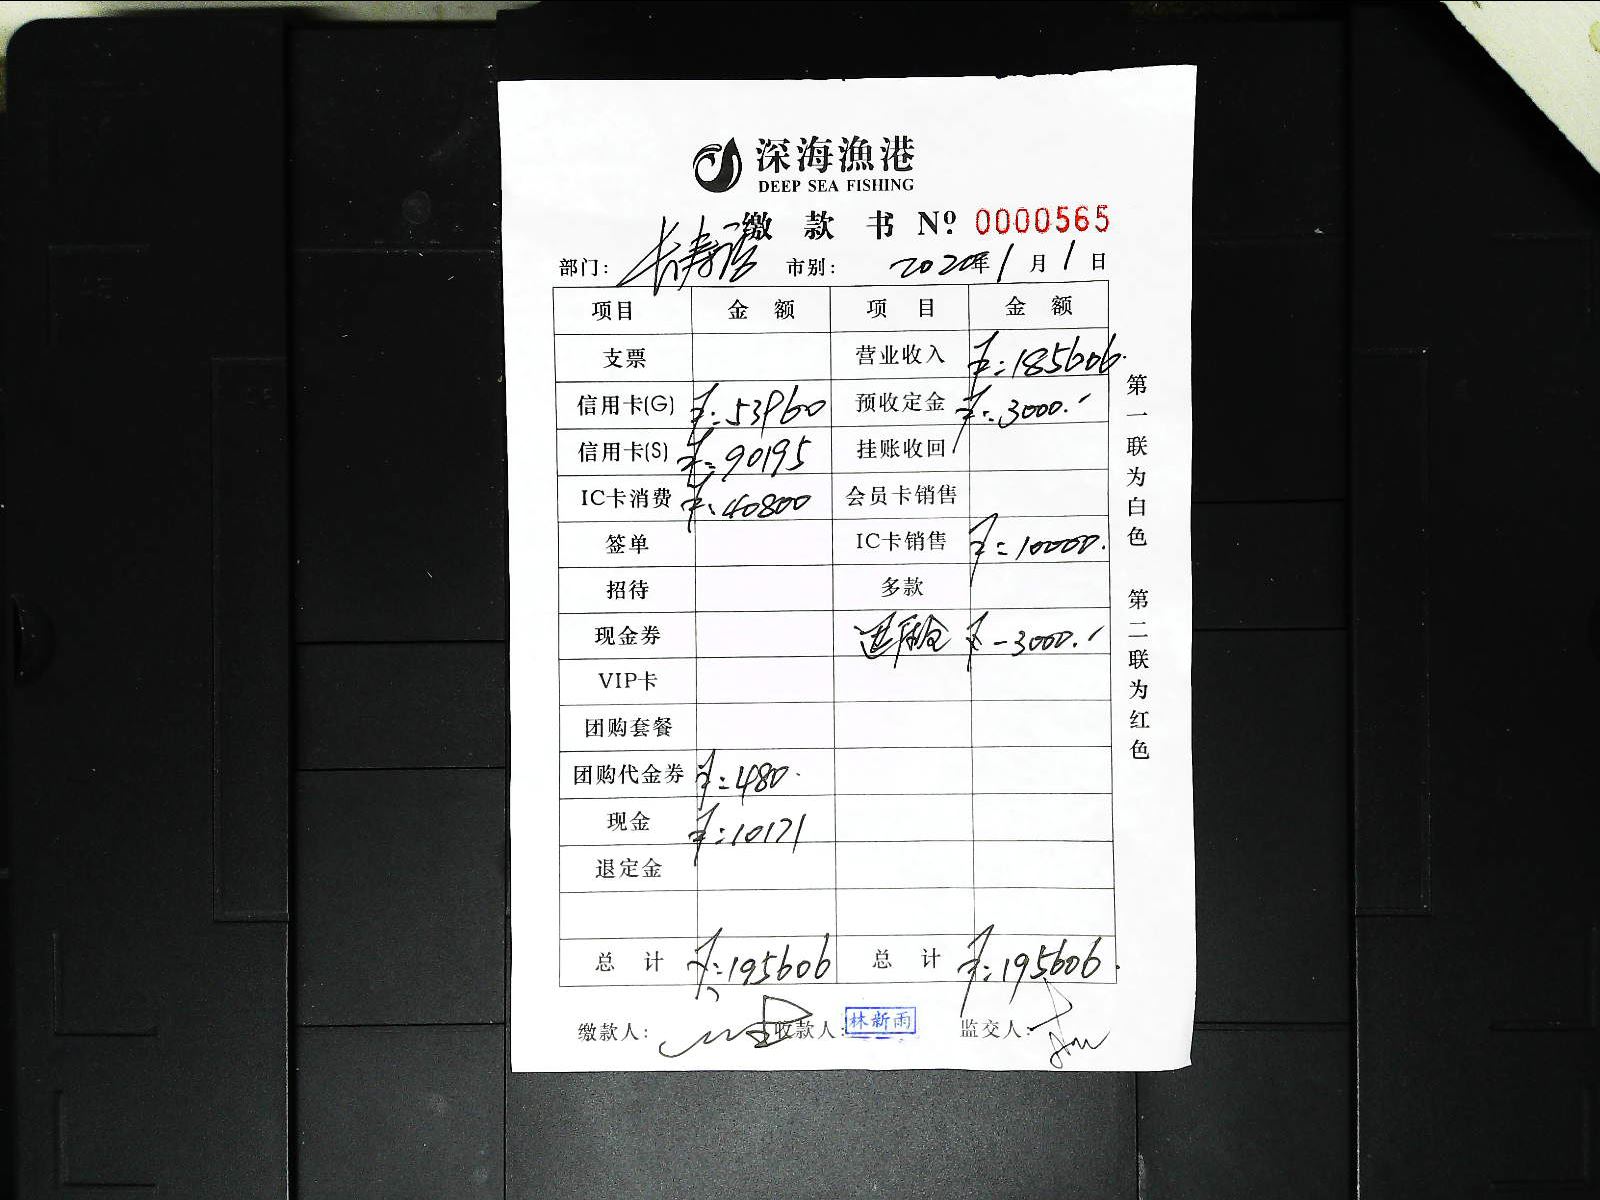 深海漁港
DEEP SEA FISHING
缴款书 Nº 0000565
部门: 长寿店 市别: 2020年1月1日
项目 金额 项目 金额
支票 营业收入 ¥:185606.
信用卡(G) ¥:53960 预收定金 ¥:3000.
信用卡(S) ¥:90195 挂账收回
IC卡消费 ¥:40800 会员卡销售
签单 IC卡销售 ¥:10000.
招待 多款
现金券 ¥-3000.
VIP卡
团购套餐
团购代金券 ¥:480.
现金 ¥:10171
退定金
总计 ¥:195606 总计 ¥:195606.
缴款人: 收款人: 林新雨 监交人:
第一联为白色 第二联为红色